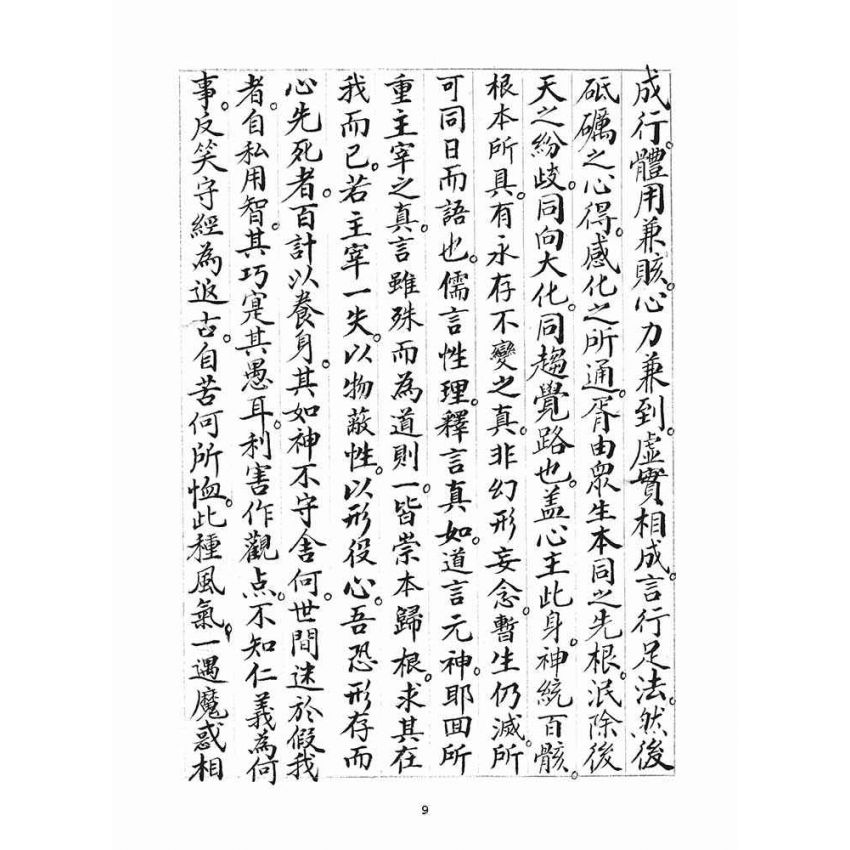 成行。體用兼賅。心力兼到。虛實相成。言行足法。然後
砥礪之心得。感化之所通。胥由眾生本同之先根。泯除後
天之紛歧。同向大化。同趨覺路也。盖心主此身。神統百骸。
根本所具。有永存不變之真。非幻形妄念。暫生仍滅。所
可同日而語也。儒言性理。釋言真如。道言元神。耶回所
重主宰之真。言雖殊而為道則一。皆崇本歸根。求其在
我而已。若主宰一失。以物蔽性。以形役心。吾恐形存而
心先死者。百計以養身。其如神不守舍何。世間迷於假我
者。自私用智。其巧寔其愚耳。利害作觀点。不知仁義為何
事。反笑守經為返古。自苦何所恤。此種風氣。一遇魔惑相
9